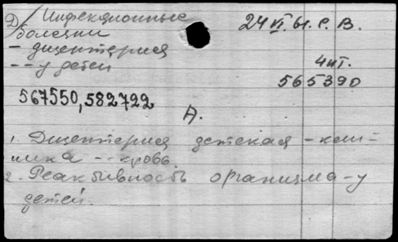 Д/ Инфекционные
болезни
- дизентерия
-- у детей
24 VI 61. С. В.
4 шт.
565390
567550, 582722
А.
1. Дизентерия детская - кли-
ника -- кровь.
2. Реактивность организма - у
детей.